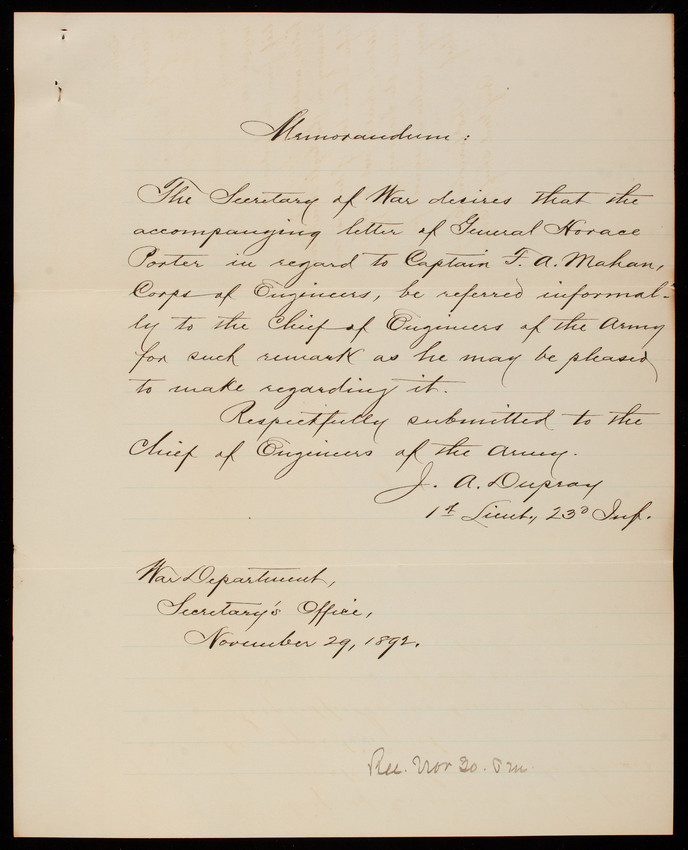 Memorandum:
The Secretary of War desires that the
accompanying letter of General Horace
Porter in regard to Captain F. A. Mahan,
Corps of Engineers, be referred informal-
ly to the Chief of Engineers of the Army
for such remark as he may be pleased
to make regarding it.
Respectfully submitted to the
Chief of Engineers of the Army.
J. A. Dapray
1st Lieut., 23d Inf.
War Department,
Secretary's Office,
November 29, 1892.
Rec. Nov 30.